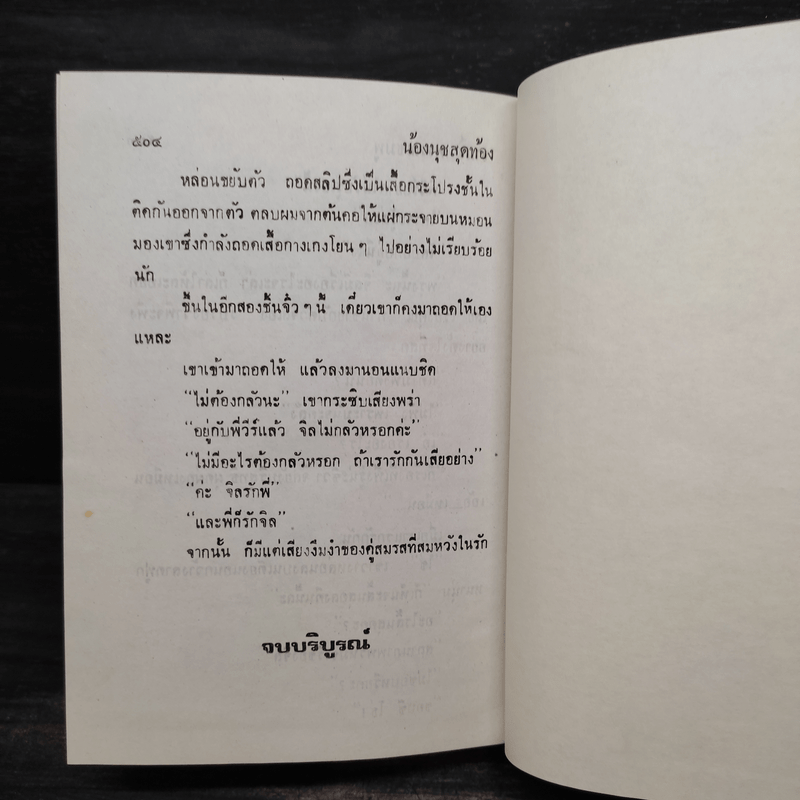 ๕๐๔
น้องนุชสุดท้อง
หล่อนขยับตัว ถอดสลิปซึ่งเป็นเสื้อกระโปรงชั้นใน
ติดกันออกจากตัว ตลบผมจากต้นคอให้แผ่กระจายบนหมอน
มองเขาซึ่งกำลังถอดเสื้อกางเกงโยน ๆ ไปอย่างไม่เรียบร้อย
นัก
ชิ้นในอีกสองชิ้นจิ๋ว ๆ นี้ เดี๋ยวเขาก็คงมาถอดให้เอง
แหละ
เขาเข้ามาถอดให้ แล้วลงมานอนแนบชิด
“ไม่ต้องกลัวนะ” เขากระซิบเสียงพร่า
“อยู่กับพี่วีร์แล้ว จิลไม่กลัวหรอกค่ะ”
“ไม่มีอะไรต้องกลัวหรอก ถ้าเรารักกันเสียอย่าง”
“ค่ะ จิลรักพี่”
“และพี่ก็รักจิล”
จากนั้น ก็มีแต่เสียงงึมงำของคู่สมรสที่สมหวังในรัก
จบบริบูรณ์